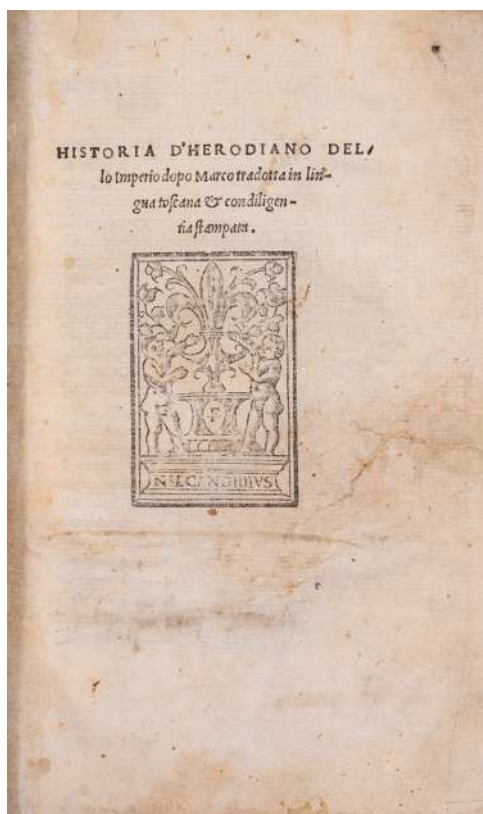 HISTORIA D'HERODIANO DEL/
lo Imperio dopo Marco tradotta in lin-
gua toſcana & con diligen-
tia ſtampata.
F
NIL CANDIDIVS